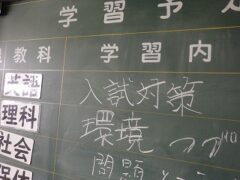 学習予定
教科 学習内
英語 入試対策
理科 環境 つづ
社会 問題
保体